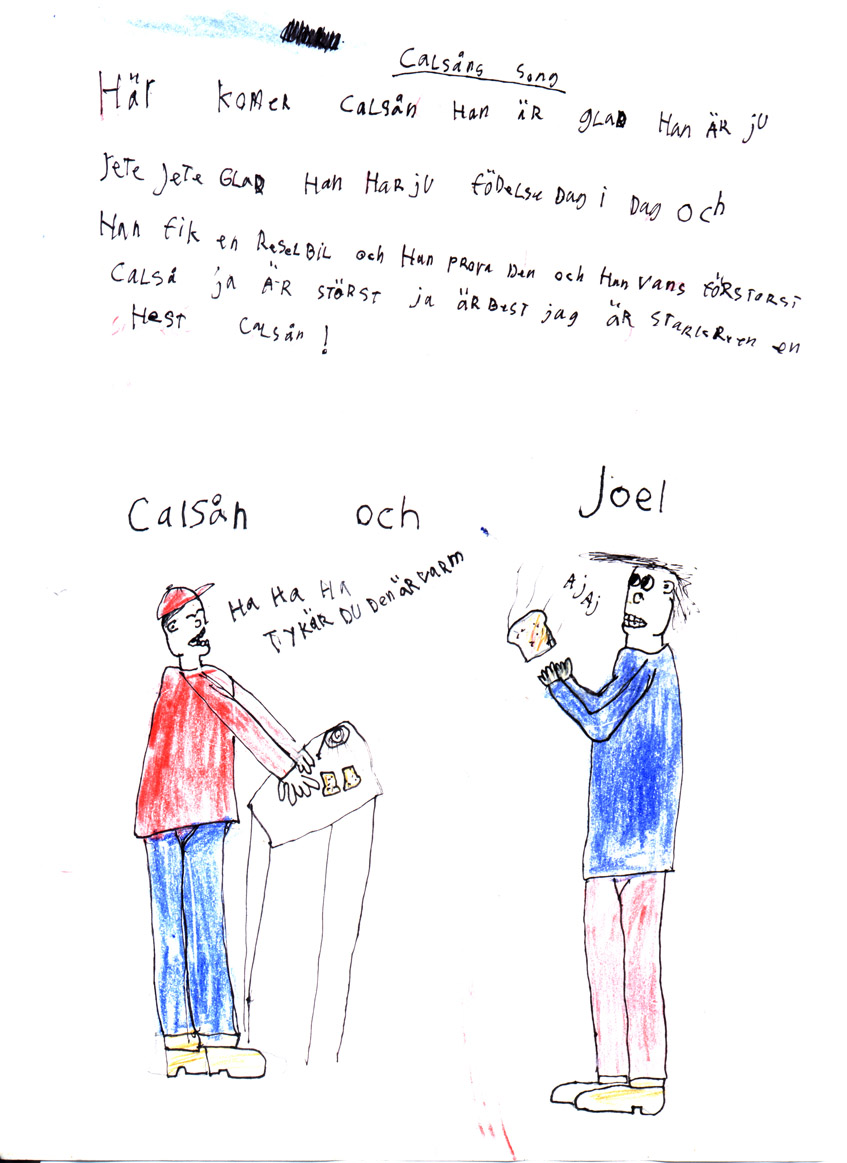 Calsåns song
Här komer Calsån Han är glad Han är ju
jete jete glad Han Har ju födelse Dag i Dag och
Han fik en Reselbil och Han prova Den och Han vans förstorst
Calså ja är störst ja är Best jag är en
Hest Calsån!
Calsån och Joel
Ha Ha Ha
Tykär Du Den är varm
Aj
Aj